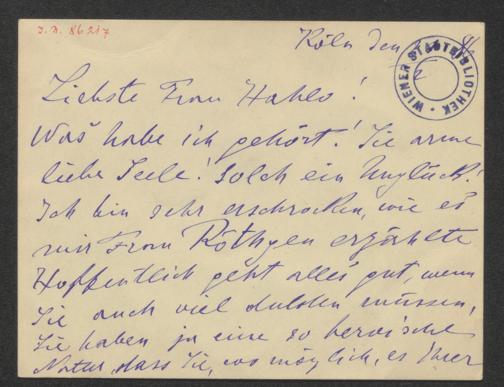 J.N. 86217
Köln den
WIENER STADTBIBLIOTHEK
Liebste Frau Kahlo!
Was habe ich gehört! Sie arme
liebe Seele! Solch ein Unglück!
Ich bin sehr erschrocken, wie es
mir Frau Röthgen erzählte
Hoffentlich geht alles gut, wenn
Sie auch viel dulden müssen,
Sie haben ja eine so heroische
Natur, dass Sie, wo möglich, es Ihrer